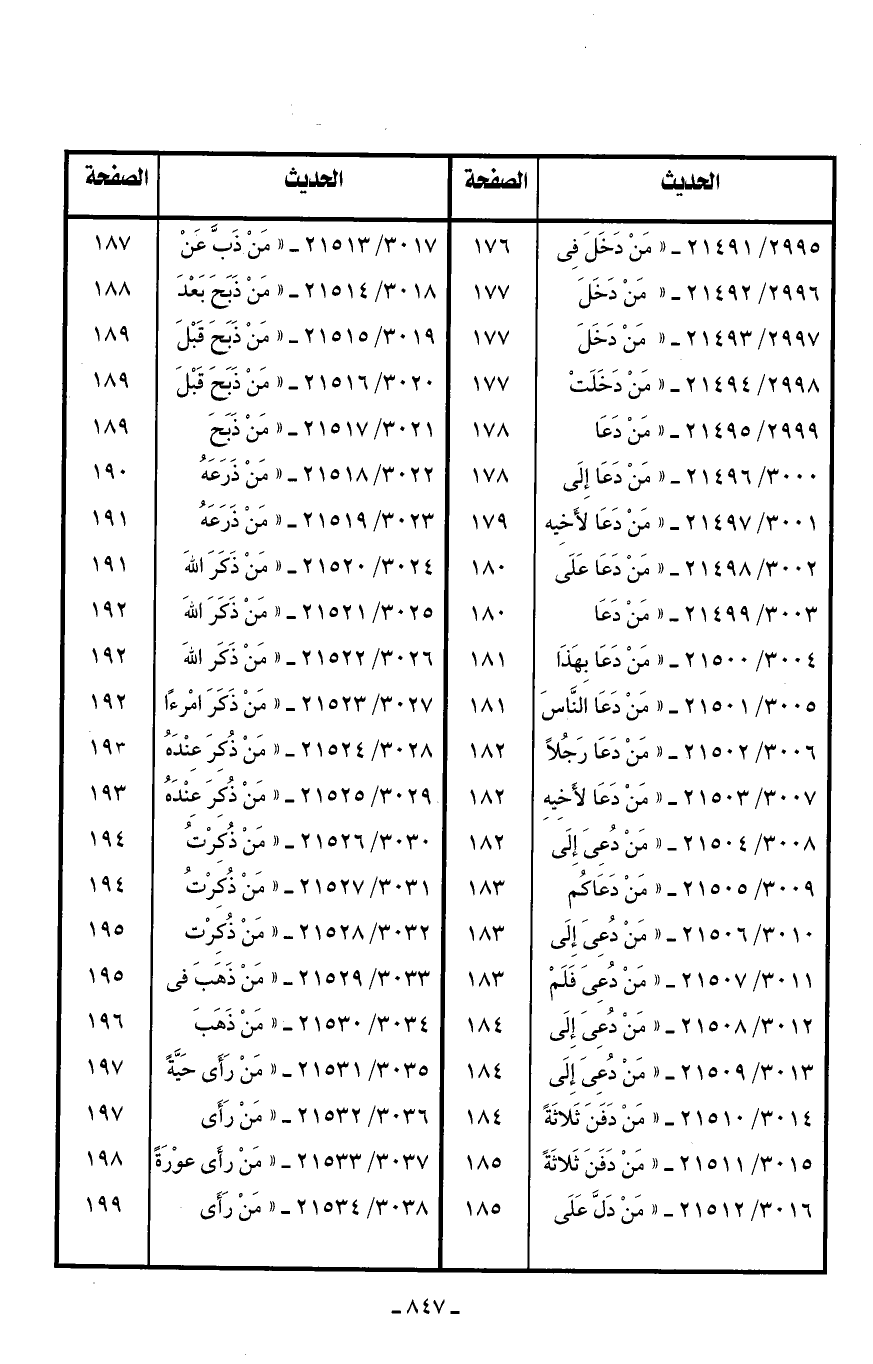 الحديث الصفحة الحديث الصفحة
٢٩٩٥/ ٢١٤٩١ ـ « مَنْ دَخَلَ فِى ١٧٦ ٣٠١٧/ ٢١٥١٣ ـ « مَنْ ذَبَّ عَنْ ١٨٧
٢٩٩٦/ ٢١٤٩٢ ـ « مَنْ دَخَلَ ١٧٧ ٣٠١٨/ ٢١٥١٤ ـ « مَنْ ذَبَحَ بَعْدَ ١٨٨
٢٩٩٧/ ٢١٤٩٣ ـ « مَنْ دَخَلَ ١٧٧ ٣٠١٩/ ٢١٥١٥ ـ « مَنْ ذَبَحَ قَبْلَ ١٨٩
٢٩٩٨/ ٢١٤٩٤ ـ « مَنْ دَخَلَتْ ١٧٧ ٣٠٢٠/ ٢١٥١٦ ـ « مَنْ ذَبَحَ قَبْلَ ١٨٩
٢٩٩٩/ ٢١٤٩٥ ـ « مَنْ دَعَا ١٧٨ ٣٠٢١/ ٢١٥١٧ ـ « مَنْ ذَبَحَ ١٨٩
٣٠٠٠/ ٢١٤٩٦ ـ « مَنْ دَعَا إِلَى ١٧٨ ٣٠٢٢/ ٢١٥١٨ ـ « مَنْ ذَرَعَهُ ١٩٠
٣٠٠١/ ٢١٤٩٧ ـ « مَنْ دَعَا لأَخِيه ١٧٩ ٣٠٢٣/ ٢١٥١٩ ـ « مَنْ ذَرَعَهُ ١٩١
٣٠٠٢/ ٢١٤٩٨ ـ « مَنْ دَعَا عَلَى ١٨٠ ٣٠٢٤/ ٢١٥٢٠ ـ « مَنْ ذَكَرَ اللهَ ١٩١
٣٠٠٣/ ٢١٤٩٩ ـ « مَنْ دَعَا ١٨٠ ٣٠٢٥/ ٢١٥٢١ ـ « مَنْ ذَكَرَ اللهَ ١٩٢
٣٠٠٤/ ٢١٥٠٠ ـ « مَنْ دَعَا بِهَذَا ١٨١ ٣٠٢٦/ ٢١٥٢٢ ـ « مَنْ ذَكَر اللهَ ١٩٢
٣٠٠٥/ ٢١٥٠١ ـ « مَنْ دَعَا النَّاسَ ١٨١ ٣٠٢٧/ ٢١٥٢٣ ـ « مَنْ ذَكَرَ امْرءًا ١٩٢
٣٠٠٦/ ٢١٥٠٢ ـ « مَنْ دَعَا رَجُلاً ١٨٢ ٣٠٢٨/ ٢١٥٢٤ ـ « مَنْ ذُكِرَ عِنْدَهُ ١٩٣
٣٠٠٧/ ٢١٥٠٣ ـ « مَنْ دَعَا لأَخِيهِ ١٨٢ ٣٠٢٩/ ٢١٥٢٥ ـ « مَنْ ذُكِرَ عِنْدَهُ ١٩٣
٣٠٠٨/ ٢١٥٠٤ ـ « مَنْ دُعِىَ إِلَى ١٨٢ ٣٠٣٠/ ٢١٥٢٦ ـ « مَنْ ذُكِرْتُ ١٩٤
٣٠٠٩/ ٢١٥٠٥ ـ « مَنْ دَعَاكُم ١٨٣ ٣٠٣١/ ٢١٥٢٧ ـ « مَنْ ذُكِرْتُ ١٩٤
٣٠١٠/ ٢١٥٠٦ ـ « مَنْ دُعِىَ إِلَى ١٨٣ ٣٠٣٢/ ٢١٥٢٨ ـ « مَنْ ذُكِرْت ١٩٥
٣٠١١/ ٢١٥٠٧ ـ « مَنْ دُعِىَ فَلَمْ ١٨٣ ٣٠٣٣/ ٢١٥٢٩ ـ « مَنْ ذَهَبَ فِى ١٩٥
٣٠١٢/ ٢١٥٠٨ ـ « مَنْ دُعِىَ إِلَى ١٨٤ ٣٠٣٤/ ٢١٥٣٠ ـ « مَنْ ذَهَبَ ١٩٦
٣٠١٣/ ٢١٥٠٩ ـ « مَنْ دُعِىَ إِلَى ١٨٤ ٣٠٣٥/ ٢١٥٣١ ـ « مَنْ رَأَى حَيَّةً ١٩٧
٣٠١٤/ ٢١٥١٠ ـ « مَنْ دَفَنَ ثَلاثَةً ١٨٤ ٣٠٣٦/ ٢١٥٣٢ ـ « مَنْ رَأَى ١٩٧
٣٠١٥/ ٢١٥١١ ـ « مَنْ دَفَنَ ثَلاثَةً ١٨٥ ٣٠٣٧/ ٢١٥٣٣ ـ « مَنْ رأَى عوْرَةً ١٩٨
٣٠١٦/ ٢١٥١٢ ـ « مَنْ دَلَّ عَلَى ١٨٥ ٣٠٣٨/ ٢١٥٣٤ ـ « مَنْ رَأَى ١٩٩
ـ ٨٤٧ ـ